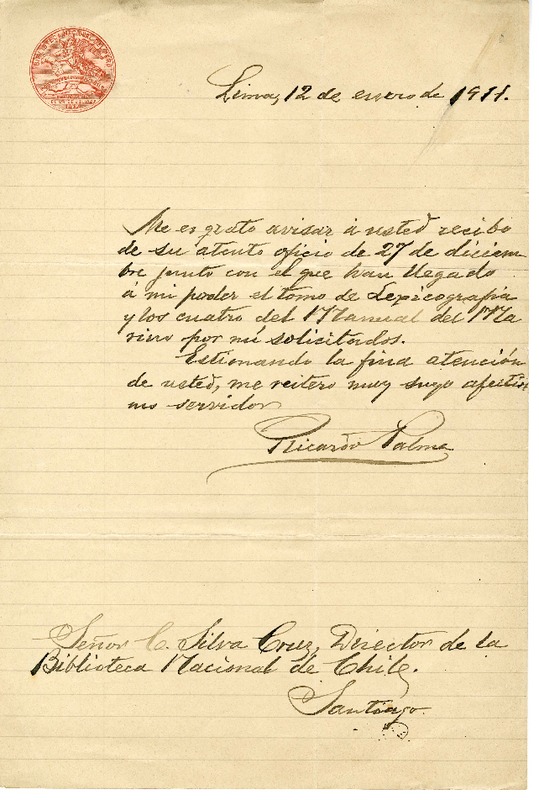 Lima, 12 de enero de 1911.
Me es grato avisar á usted recibo
de su atento oficio de 27 de diciem
bre junto con el que han llegado
á mi poder el tomo de Lexicografia
y los cuatro del Manual del Ma
rino por mí solicitados.
Estimando la fina atención
de usted, me reitero muy suyo afectísi
mo servidor
Ricardo Palma
Señor C. Silva Cruz, Director de la
Biblioteca Nacional de Chile.
Santiago.